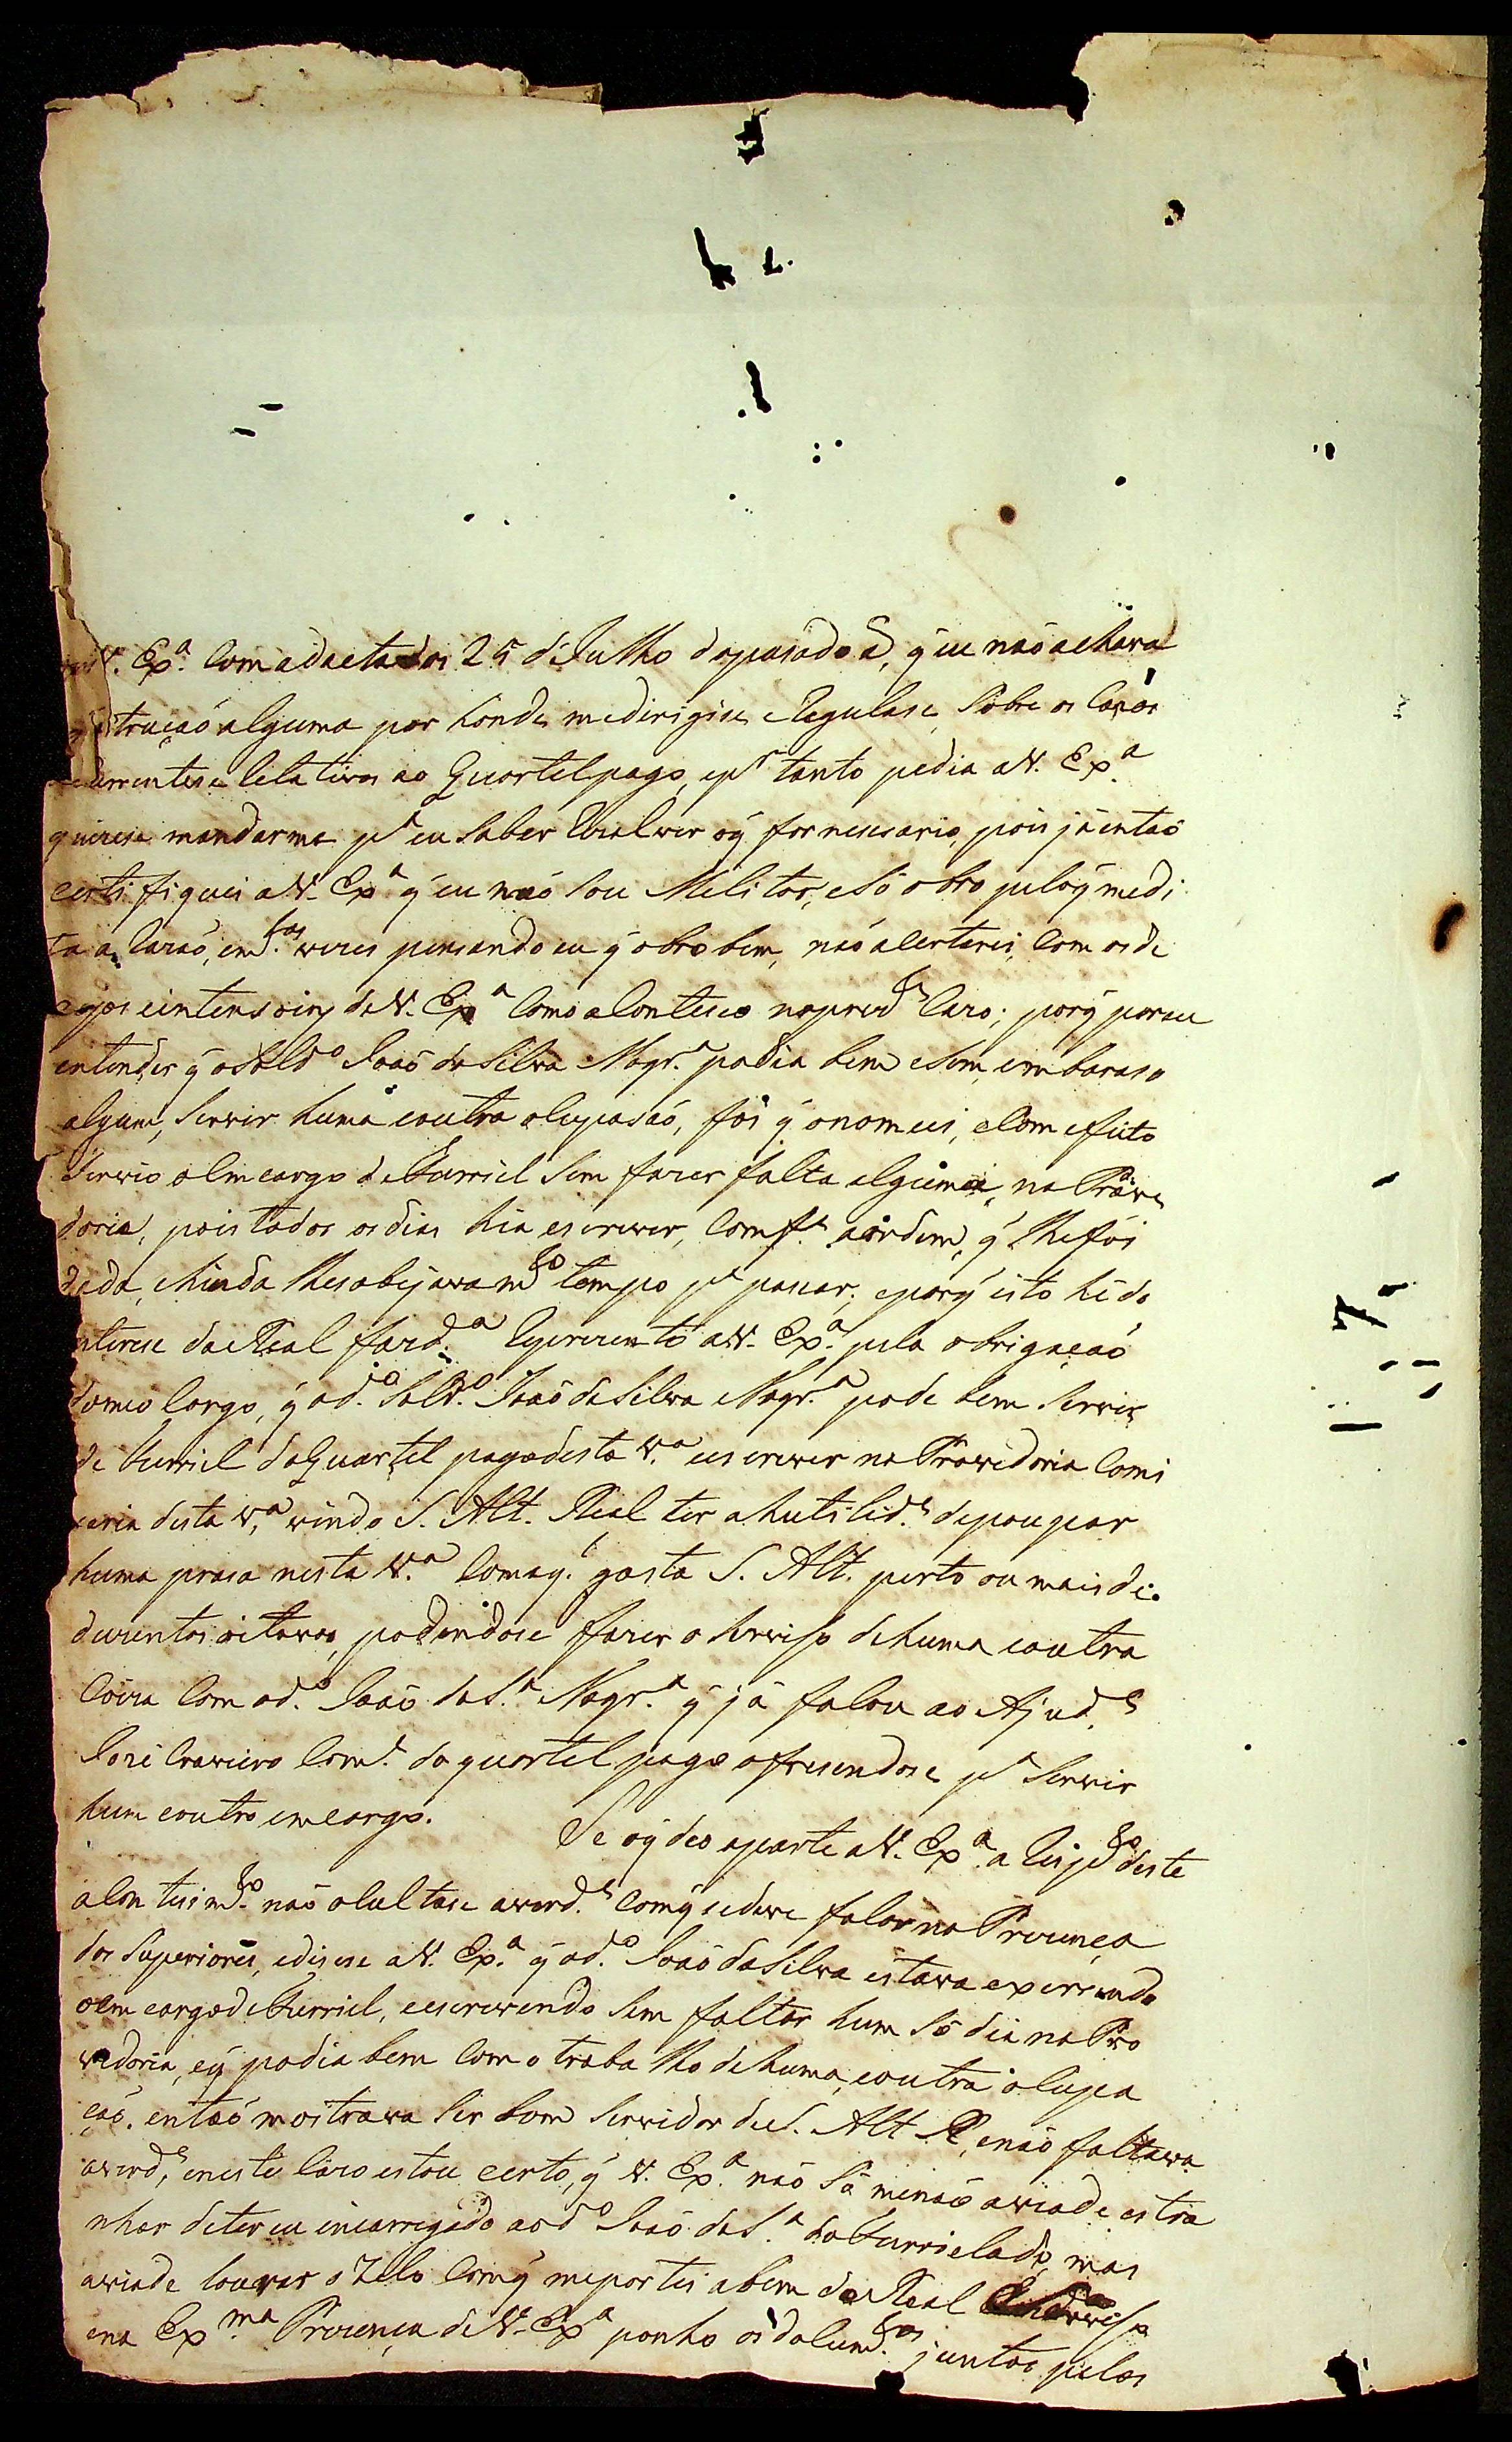 V. Ex.ª Com adacta dos 25 dJulho dopasado ã, q̃ eu naó achava
truçaó alguma por honde medirigise eRegulase, Sobre os Cazos
relativos ao Quartel pago, ep.ª tanto pedia aV. Ex.ª
quizese mandarma p.ª eu Saber Rezolver oq̃ fornecesario, pois já entaó
certifiquei aV. Exª q̃ eu naó Sou Militar, eSó obro peloq̃ medi
ta a Razaó, em.tas vezes pensando eu q̃ obro bem, naó acertarei, Com osde
zejos eintensoins deV. Exª Como aConteseo noprezd.e Cazo; porq̃ poreu
entender q̃ oSoldº Joaó daSilva Nogr.ª podia bem eSem, embaraso
algum, Servir huma eoutra oCupasaó, foi q̃ onomeei, eCom efeito
Servio oEmcargo deFurriel Sem fazer falta alguma, na Prove
doria, pois todos osdias hia escrever, Comf.e aordem, q̃ lhefoi
dada, ehinda lhesobejava m.to tempo p.ª pasiar; eporq̃ isto hé do
nterese daReal fazd.ª Reprezento aV. Ex.ª pela obrigaçaó
domeo Cargo, q̃ od.º Sold.º Joaó daSilva Nogr.ª pode bem Servir
de Furriel doQuartel pagodesta V.ª eescrever na Provedoria Comi
saria desta V.ª vindo S. Alt. Real ter ahutilid.e depoupar
huma prasa nesta V.ª Comaq̃ gasta S. Alt. perto ou mais de
duzentas oitavas, podendose fazer oServiso dehuma eoutra
Coiza Com od.º Joaó daS.ª Nogr.ª q̃ já falou ao Ajud.e
Jozé Craveiro Com.e do quartel pago ofresendose p.ª Servir
hum eoutro emcargo. Se oq̃ deo aparte aV. Ex.ª a Resp.to deste
aContesim.to naó oCultase averd.e Comq̃ sedeve falar na Prezença
dos Superiores, edisese aV. Ex.ª q̃ od.º Joaó daSilva estava exersendo
oEmcargo deFurriel, eescrevendo Sem faltar hum Só dia na Pro
vedoria, eq̃ podia bem Com o trabalho dehuma, eoutra oCupa
çaó. entaó mostrava Ser bom Servidor deS. Alt R. enaó faltava
averd.e, eneste Cazo estou certo, q̃ V. Ex.ª naó Só menaó aviade estra
nhar deter eu incarregado aod.º Joaó daS.ª doFurrielado, mas
aviade louvar oZello Comq̃ meportei abem do Real Serviso
ena Ex.ma Prezença deV. Exª ponho osdoCum.tos juntos pelos